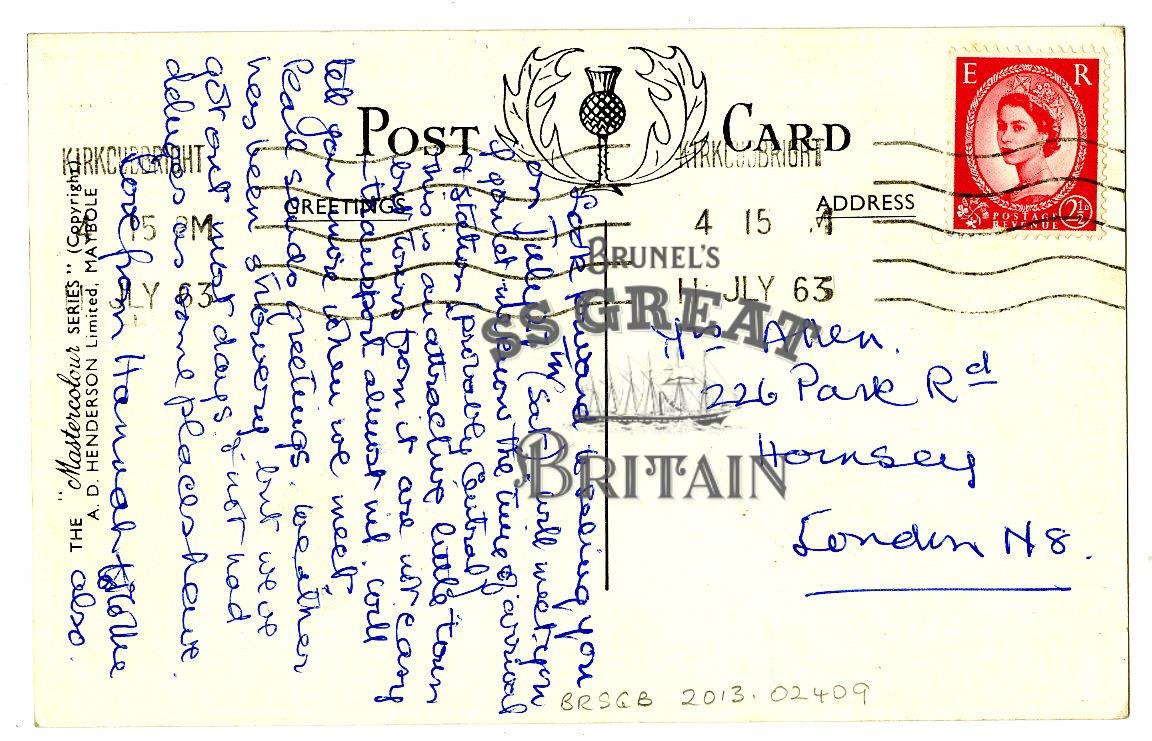 POST CARD
KIRKCUDBRIGHT
KIRKCUDBRIGHT
GREETINGS
ADDRESS
4 15 PM
4 15
JLY 63
11 JLY 63
E R
POSTAGE
REVENUE
2½D
THE "Mastercolour SERIES" (Copyright)
A. D. HENDERSON Limited, MAYBOLE
BRUNEL'S
SS GREAT
BRITAIN
Look forward to seeing you
on July (Sat). will meet you
if you let me know the time of arrival
& station (probably Central)
This is an attractive little town
but tours from it are not easy
transport almost nil. will
tell you more when we meet
sends greetings. Weather
has been showery but we've
got out most days & not had
deluges as some places have.
Love from Hannah
also.
Mrs Allen.
226 Park Rd
Hornsey
London N8.
BRSGB 2013.02409